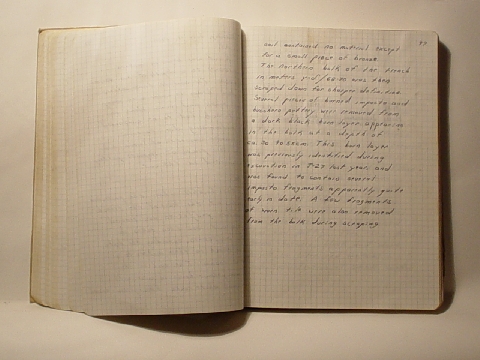 99
and contained no material except
for a small piece of bronze.
The Northern baulk of the trench
in meters was then
scraped down for sharper definition.
Several pieces of burned impasto and
bucchero pottery were removed from
a dark black burn layer appearing
in the baulk at a depth of
ca. to cm. This burn layer
was previously identified during
excavation in T-27 last year and
was found to contain several
impasto fragments apparently quite
early in date. A few fragments
of worn tile were also removed
from the baulk during scraping